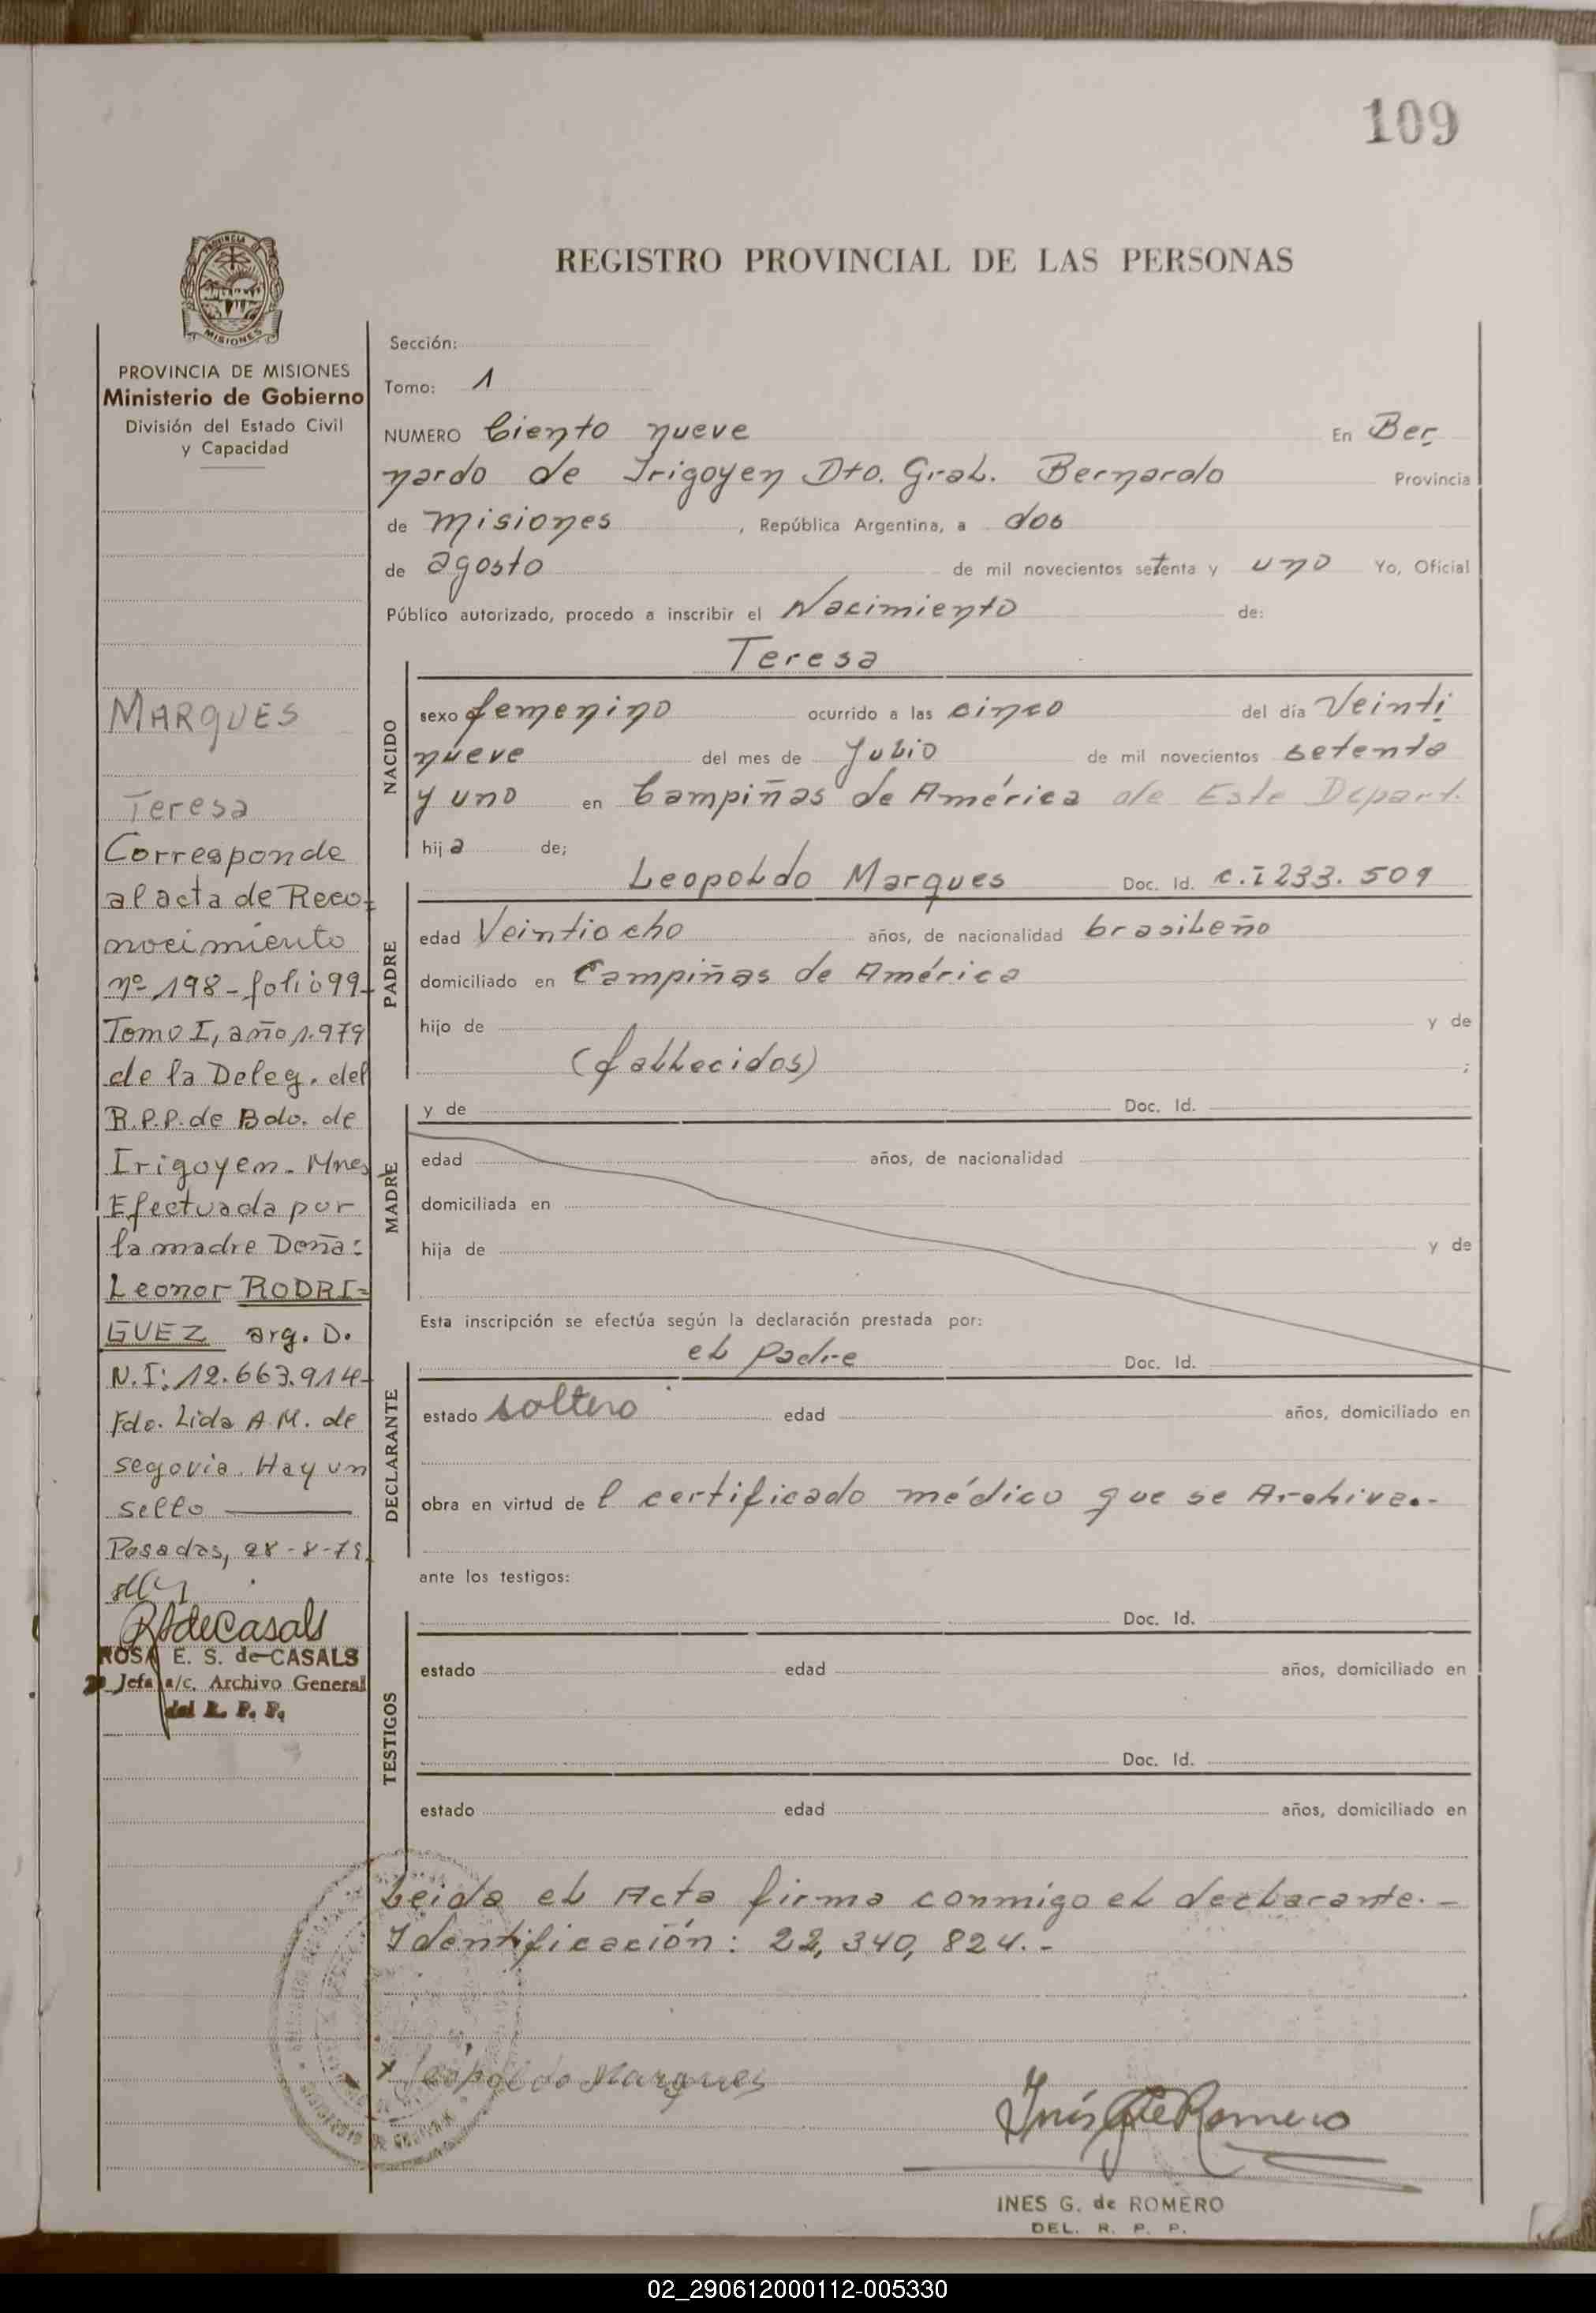 109
REGISTRO PROVINCIAL DE LAS PERSONAS
PROVINCIA DE
MISIONES
PROVINCIA DE MISIONES
Ministerio de Gobierno
División del Estado Civil
y Capacidad
MARQUES
Teresa
Corresponde
al acta de Reco-
nocimiento
nº 198 - folio 99-
Tomo I, año 1.979
de la Deleg. del
R.P.P. de Bdo. de
Irigoyen. Mnes
Efectuada por
la madre Doña:
Leonor RODRI=
GUEZ arg. D.
N.I: 12.663.914-
Fdo. Lida A.M. de
segovia. Hay un
sello
Posadas, 28-8-79.
RSdeCasals
ROSA E. S. de CASALS
Jefa a/c. Archivo General
del R. P. P.
Sección:
Tomo: 1
NUMERO Ciento nueve En Ber
nardo de Irigoyen Dto. Gral. Bernardo Provincia
de Misiones , República Argentina, a dos
de agosto de mil novecientos setenta y uno Yo, Oficial
Público autorizado, procedo a inscribir el Nacimiento de:
Teresa
NACIDO
sexo femenino ocurrido a las cinco del día Veinti
nueve del mes de Julio de mil novecientos setenta
y uno en Campiñas de América de Este Depart.
hija de;
PADRE
Leopoldo Marques Doc. Id. c.i 233.509
edad Veintiocho años, de nacionalidad brasileño
domiciliado en Campiñas de América
hijo de y de
(fallecidos) ;
MADRE
y de Doc. Id.
edad años, de nacionalidad
domiciliada en
hija de y de
Esta inscripción se efectúa según la declaración prestada por:
DECLARANTE
el Padre Doc. Id.
estado soltero edad años, domiciliado en
obra en virtud de l certificado médico que se Archiva.-
ante los testigos:
TESTIGOS
Doc. Id.
estado edad años, domiciliado en
Doc. Id.
estado edad años, domiciliado en
Leida el Acta firma conmigo el declarante.-
Identificación: 22,340,824.-
x Leopoldo Marques
Inés G de Romero
INES G. de ROMERO
DEL. R. P. P.
02_290612000112-005330